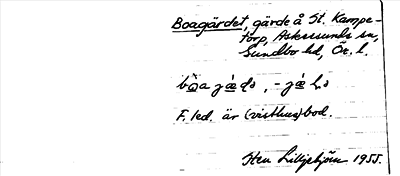 Boagärdet, gärde å St. Kampe-
torp, Askersunds sn,
Sundbo hd, Ör. l.
F. led. är (visthus)bod.
Sten Liljehjörn 1955.